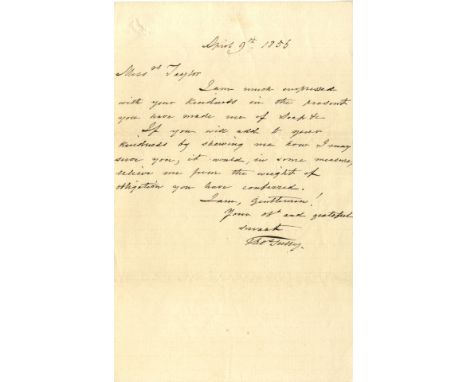 April 9th 1856
Messrs Taylor
I am much impressed
with your kindness in the present
you have made me of Soap &c
If you will add to your
kindness by shewing me how I may
serve you, it would, in some measure,
relieve me from the weight of
obligation you have conferred.
I am, Gentlemen!
Your obt and grateful
servant
Thos